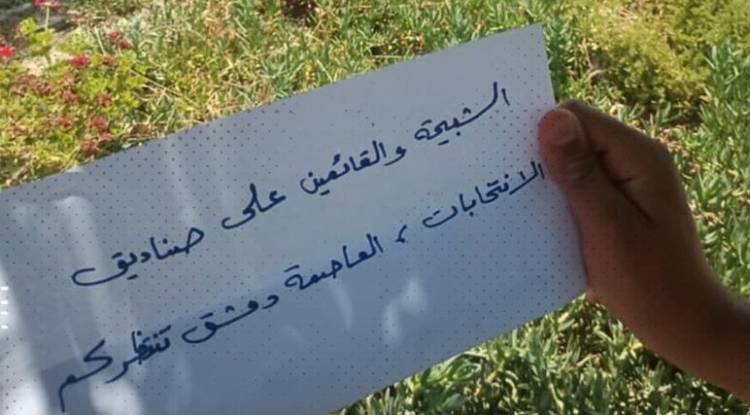 الشبيحة والقائمين على صناديق
الانتخابات ، العاصمة دمشق تنتظركم